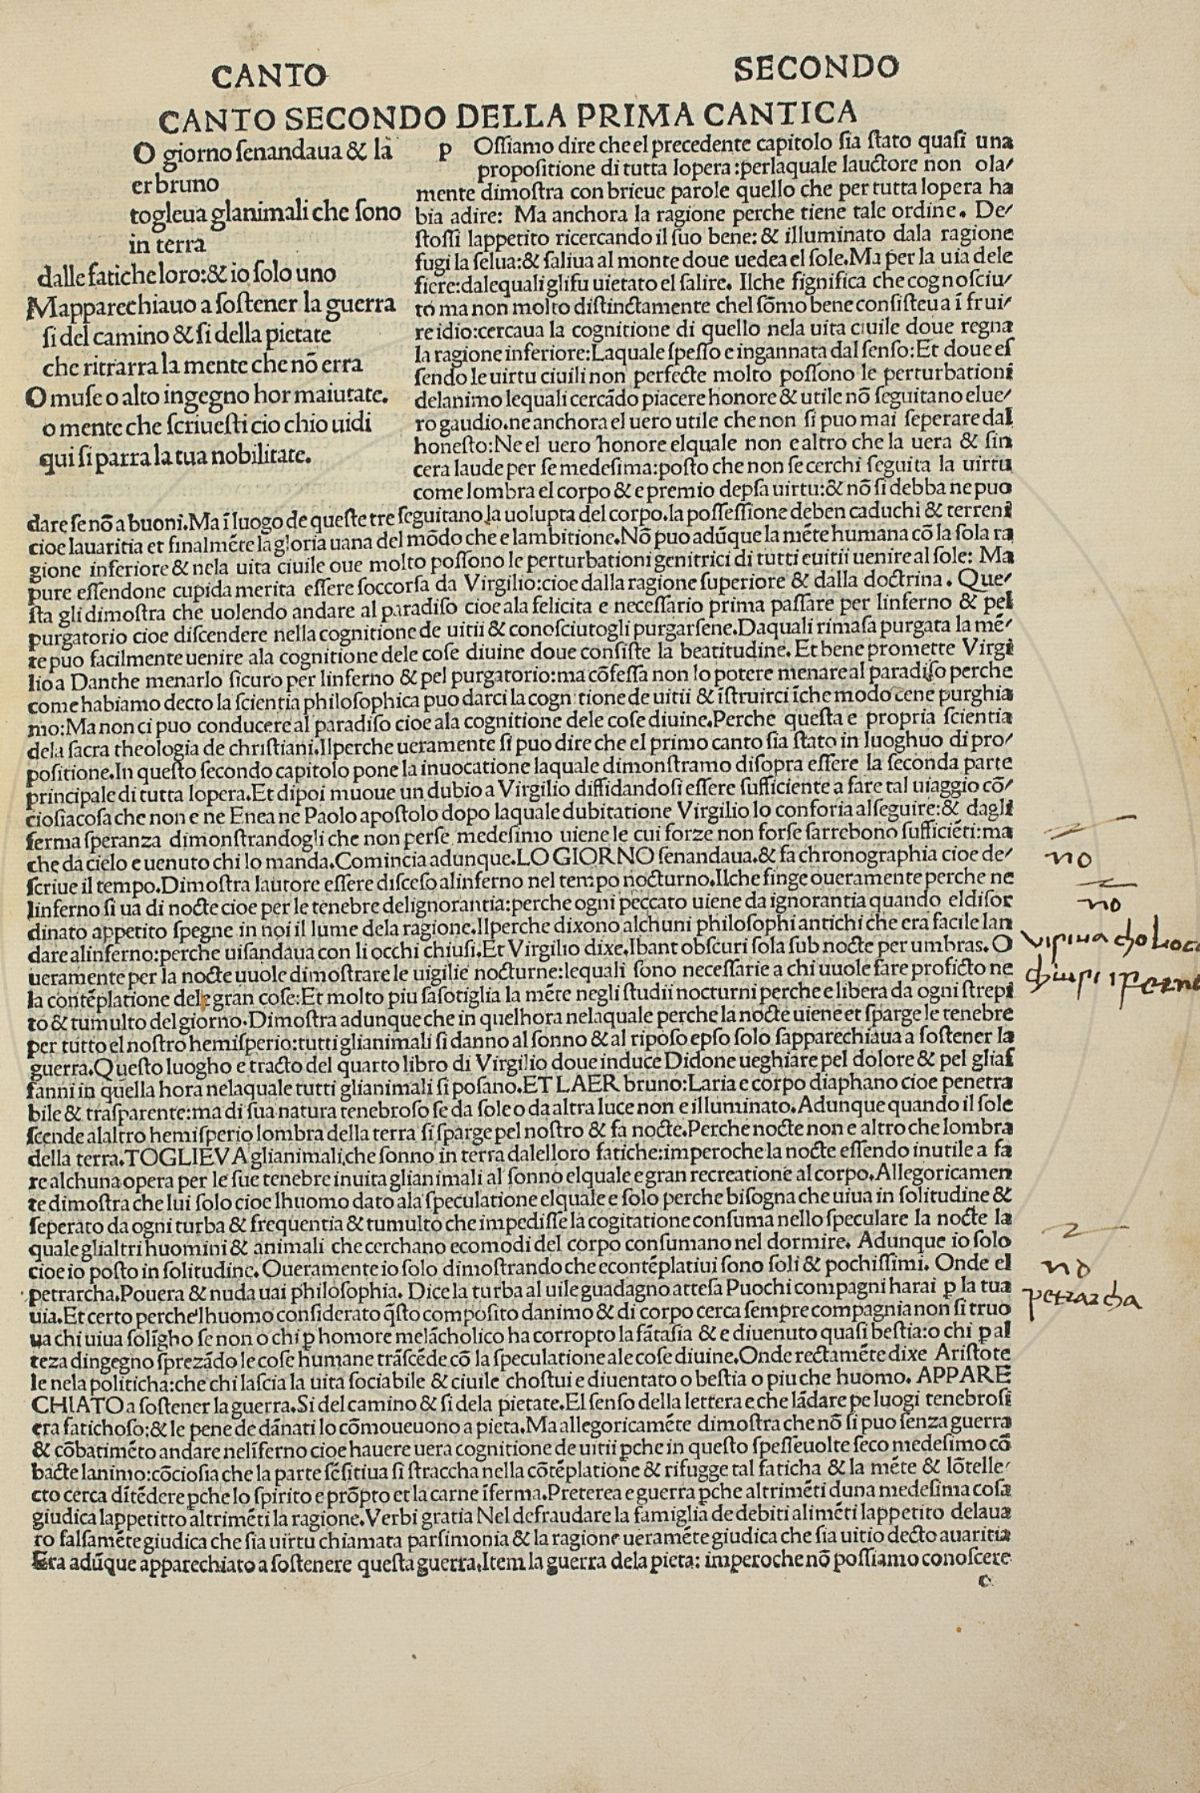 CANTO SECONDO
CANTO SECONDO DELLA PRIMA CANTICA
O giorno ſenandaua & la
er bruno
togleua glanimali che ſono
in terra
dalle fatiche loro:& io ſolo uno
Mapparechiauo a ſoſtener la guerra
ſi del camino & ſi della pietate
che ritrarra la mente che nō erra
O muſe o alto ingegno hor maiutate.
o mente che ſcriueſti cio chio uidi
qui ſi parra la tua nobilitate.
p Oſſiamo dire che el precedente capitolo ſia ſtato quaſi una
propoſitione di tutta lopera:perlaquale lauctore non ola/
mente dimoſtra con brieue parole quello che per tutta lopera ha
bia adire: Ma anchora la ragione perche tiene tale ordine. De/
ſtoſſi lappetito ricercando il ſuo bene:& illuminato dala ragione
fugi la ſelua:& ſaliua al monte doue uedea el ſole.Ma per la uia dele
fiere:dalequali gli fu uietato el ſalire. Ilche ſignifica che cognoſciu/
to ma non molto diſtinctamente chel ſōmo bene conſiſteua ī frui/
re idio:cercaua la cognitione di quello nela uita ciuile doue regna
la ragione inferiore:Laquale ſpeſſo e ingannata dal ſenſo:Et doue eſ
ſendo le uirtu ciuili non perfecte molto poſſono le perturbationi
delanimo lequali cercādo piacere honore & utile nō ſeguitano el ue/
ro gaudio.ne anchora el uero utile che non ſi puo mai ſeperare dal
honeſto:Ne el uero honore elquale non e altro che la uera & ſin
cera laude per ſe medeſima:poſto che non ſe cerchi ſeguita la uirtu
come lombra el corpo & e premio depſa uirtu:& nō ſi debba ne puo
dare ſe nō a buoni.Ma ī luogo de queſte tre ſeguitano la uolupta del corpo.la poſſeſſione deben caduchi & terreni
cioe lauaritia et finalmēte la gloria uana del mōdo che e lambitione.Nō puo adūque la mēte humana cō la ſola ra
gione inferiore & nela uita ciuile oue molto poſſono le perturbationi genitrici di tutti euitii uenire al ſole: Ma
pure eſſendone cupida merita eſſere ſoccorſa da Virgilio:cioe dalla ragione ſuperiore & dalla doctrina. Que/
ſta gli dimoſtra che uolendo andare al paradiſo cioe ala felicita e neceſſario prima paſſare per linferno & pel
purgatorio cioe diſcendere nella cognitione de uitii & conoſciutogli purgarſene.Daquali rimaſa purgata la mē/
te puo facilmente uenire ala cognitione dele coſe diuine doue conſiſte la beatitudine. Et bene promette Virgi
lio a Danthe menarlo ſicuro per linferno & pel purgatorio:ma cōfeſſa non lo potere menare al paradiſo perche
come habiamo decto la ſcientia philoſophica puo darci la cogn tione de uitii & īſtruirci īche modo cene purghia
mo:Ma non ci puo conducere al paradiſo cioe ala cognitione dele coſe diuine.Perche queſta e propria ſcientia
dela ſacra theologia de chriſtiani.Ilperche ueramente ſi puo dire che el primo canto ſia ſtato in luoghuo di pro/
poſitione.In queſto ſecondo capitolo pone la inuocatione laquale dimonſtramo diſopra eſſere la ſeconda parte
principale di tutta lopera.Et dipoi muoue un dubio a Virgilio diffidandoſi eſſere ſufficiente a fare tal uiaggio cō/
cioſiacoſa che non e ne Enea ne Paolo apoſtolo dopo laquale dubitatione Virgilio lo conforia alſeguire:& dagli
ferma ſperanza dimonſtrandogli che non perſe medeſimo uiene le cui forze non forſe ſarrebono ſufficiēti:ma
che da cielo e uenuto chi lo manda.Comincia adunque.LO GIORNO ſenandaua.& fa chronographia cioe de/
ſcriue il tempo.Dimoſtra lautore eſſere diſceſo alinferno nel tempo nocturno.Ilche finge oueramente perche ne
linferno ſi ua di nocte cioe per le tenebre delignorantia:perche ogni peccato uiene da ignorantia quando el diſor
dinato appetito ſpegne in noi il lume dela ragione.Ilperche dixono alchuni philoſophi antichi che era facile lan
dare alinferno:perche uiſandaua con li occhi chiuſi.Et Virgilio dixe.Ibant obſcuri ſola ſub nocte per umbras. O
ueramente per la nocte uuole dimoſtrare le uigilie nocturne:lequali ſono neceſſarie a chi uuole fare proficto ne
la contēplatione dele gran coſe:Et molto piu ſaſotiglia la mēte negli ſtudii nocturni perche e libera da ogni ſtrepi
to & tumulto del giorno.Dimoſtra adunque che in quelhora nelaquale perche la nocte uiene et ſparge le tenebre
per tutto el noſtro hemiſperio:tutti glianimali ſi danno al ſonno & al ripoſo epſo ſolo ſapparechiaua a ſoſtener la
guerra.Queſto luogho e tracto del quarto libro di Virgilio doue induce Didone ueghiare pel dolore & pel gliaf
fanni in quella hora nelaquale tutti glianimali ſi poſano.ET LAER bruno:Laria e corpo diaphano cioe penetra
bile & traſparente:ma di ſua natura tenebroſo ſe da ſole o da altra luce non e illuminato.Adunque quando il ſole
ſcende alaltro hemiſperio lombra della terra ſi ſparge pel noſtro & fa nocte.Perche nocte non e altro che lombra
della terra.TOGLIEVA glianimali,che ſonno in terra dalelloro fatiche:imperoche la nocte eſſendo inutile a fa
re alchuna opera per le ſue tenebre inuita glianimali al ſonno elquale e gran recreatione al corpo.Allegoricamen
te dimoſtra che lui ſolo cioe lhuomo dato ala ſpeculatione elquale e ſolo perche biſogna che uiua in ſolitudine &
ſeperato da ogni turba & frequentia & tumulto che impediſſe la cogitatione conſuma nello ſpeculare la nocte la
quale glialtri huomini & animali che cerchano ecomodi del corpo conſumano nel dormire. Adunque io ſolo
cioe io poſto in ſolitudine. Oueramente io ſolo dimoſtrando che econtēplatiui ſono ſoli & pochiſſimi. Onde el
petrarcha.Pouera & nuda uai philoſophia. Dice la turba al uile guadagno atteſa Puochi compagni harai p̱ la tua
uia.Et certo perche lhuomo conſiderato q̄ſto compoſito danimo & di corpo cerca ſempre compagnia non ſi truo
ua chi uiua ſoligho ſe non o chi p̱ homore melācholico ha corropto la fātaſia & e diuenuto quaſi beſtia:o chi p̱ al
teza dingegno ſprezādo le coſe humane trāſcēde cō la ſpeculatione ale coſe diuine.Onde rectamēte dixe Ariſtote
le nela politicha:che chi laſcia la uita ſociabile & ciuile choſtui e diuentato o beſtia o piu che huomo. APPARE
CHIATO a ſoſtener la guerra.Si del camino & ſi dela pietate.El ſenſo della lettera e che lādare pe luogi tenebroſi
era fatichoſo:& le pene de dānati lo cōmoueuono a pieta.Ma allegoricamēte dimoſtra che nō ſi puo ſenza guerra
& cōbatimēto andare nelīferno cioe hauere uera cognitione de uitii p̱che in queſto ſpeſſeuolte ſeco medeſimo cō
bacte lanimo:cōcioſia che la parte ſēſitiua ſi ſtraccha nella cōtēplatione & rifugge tal faticha & la mēte & lōtelle/
cto cerca dītēdere p̱che lo ſpirito e prōpto et la carne īferma.Preterea e guerra p̱che altrimēti duna medeſima coſa
giudica lappetitto altrimēti la ragione.Verbi gratia Nel defraudare la famiglia de debiti alimēti lappetito delaua
ro falſamēte giudica che ſia uirtu chiamata parſimonia & la ragione ueramēte giudica che ſia uitio decto auaritia
Era adūque apparechiato a ſoſtenere queſta guerra.Item la guerra dela pieta: imperoche nō poſſiamo conoſcere
c
no
no
no
petrarcha